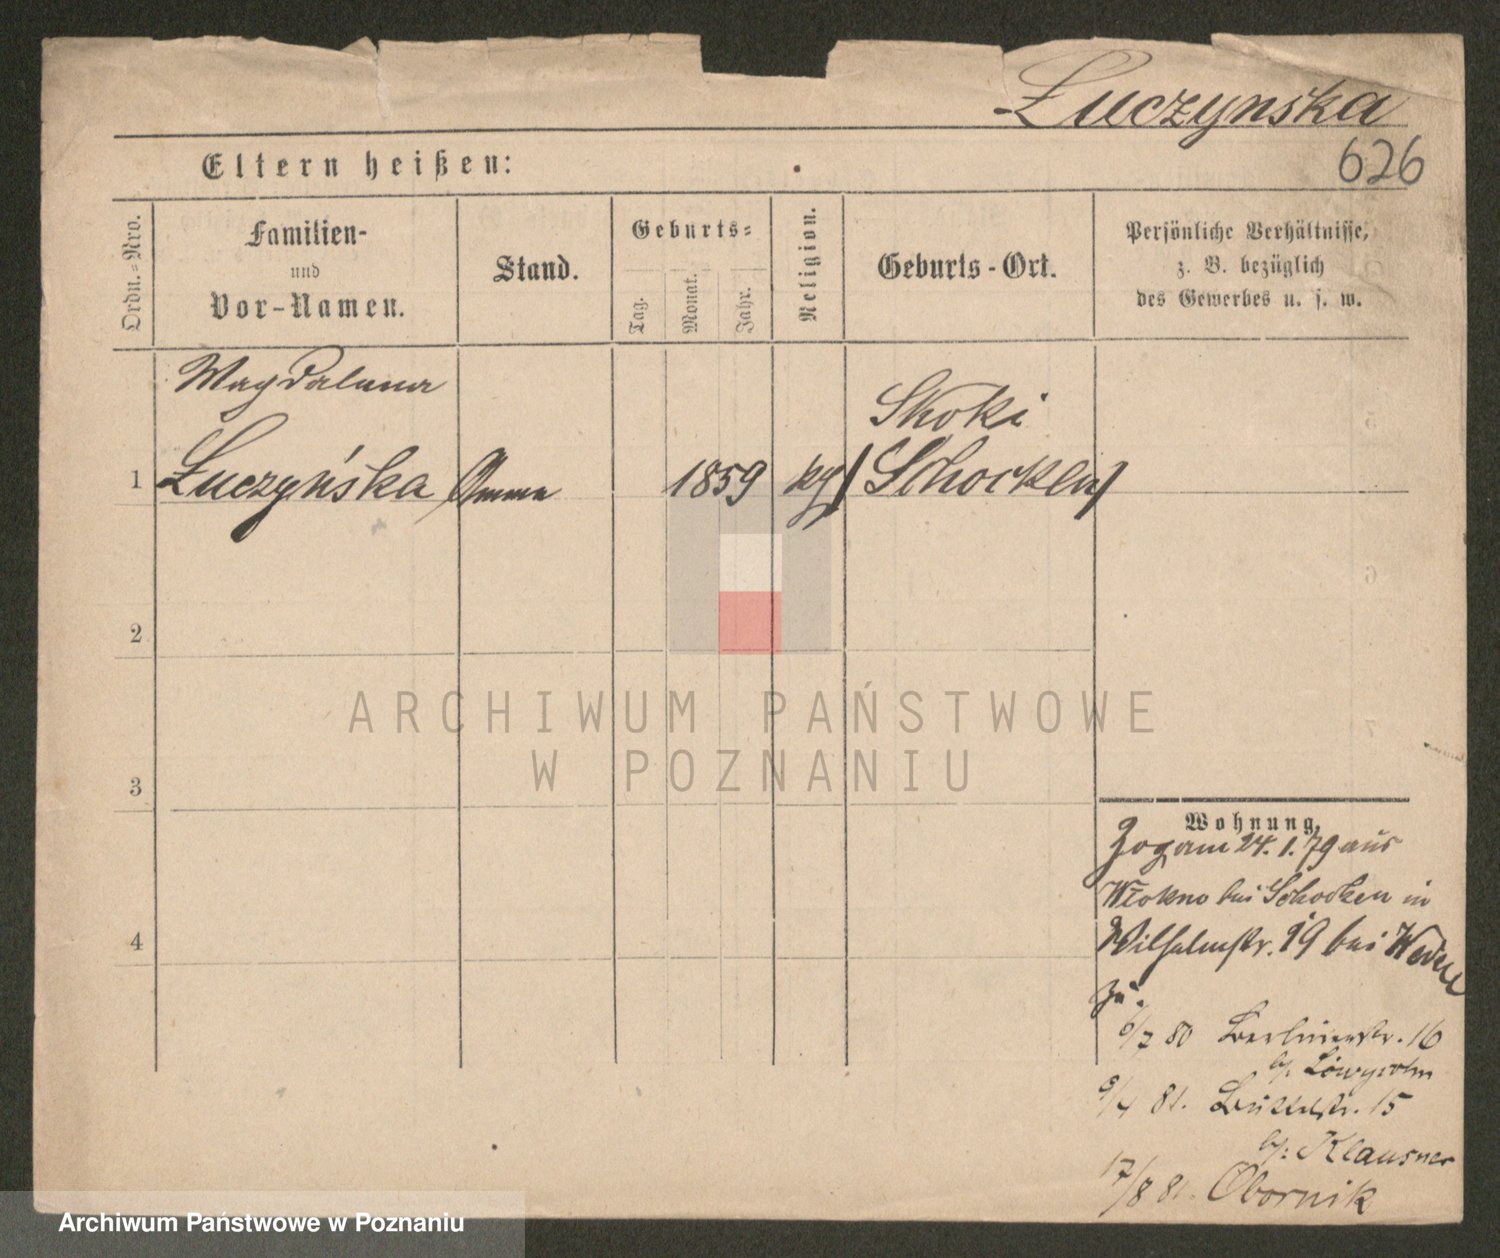 Łuczynska
626
Eltern heißen:
Ordn.=Nro.
Familien-
und
Vor-Namen.
Stand.
Geburts=
Tag.
Monat.
Jahr.
Religion.
Geburts-Ort.
Persönliche Verhältnisse,
z. B. bezüglich
des Gewerbes u. s. w.
Magdalena
Skoki
1 Łuczyńska Amme 1859 kg (Schocken)
2
ARCHIWUM PAŃSTWOWE
W POZNANIU
3
Wohnung.
Zog am 24.1.79 aus
Włokno bei Schocken in
4
Wilhelmstr. 19 bei
zu.
6/7 80 Berlinerstr. 16
b/: Löwysohn
9/4 81. Büttelstr. 15
b/: Klausner
17/8 81. Obornik
Archiwum Państwowe w Poznaniu